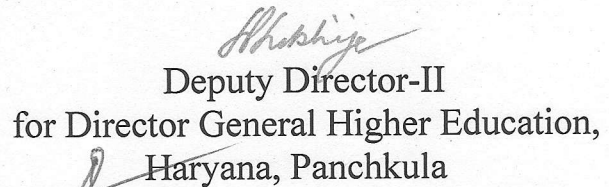 Deputy Director-II
for Director General Higher Education,
Haryana, Panchkula